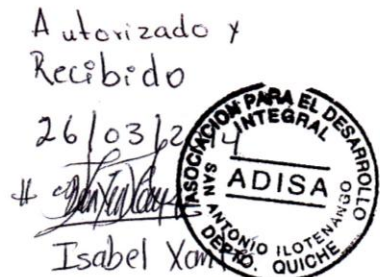 Autorizado y
Recibido
26/03/2014
Isabel
ASOCIACION PARA EL DESARROLLO
INTEGRAL
ADISA
SAN ANTONIO ILOTENANGO
DEPTO. QUICHE